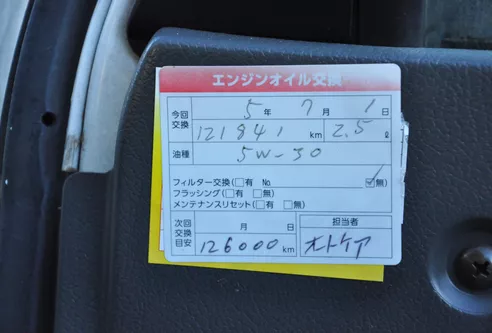 エンジンオイル交換
今回交換 5年 7月 1日
121841 km 2.5 ℓ
油種 5W-30
フィルター交換(□有 No. ☑無)
フラッシング(□有 □無)
メンテナンスリセット(□有 □無)
次回交換目安 月 日
126000 km
担当者
オートケア